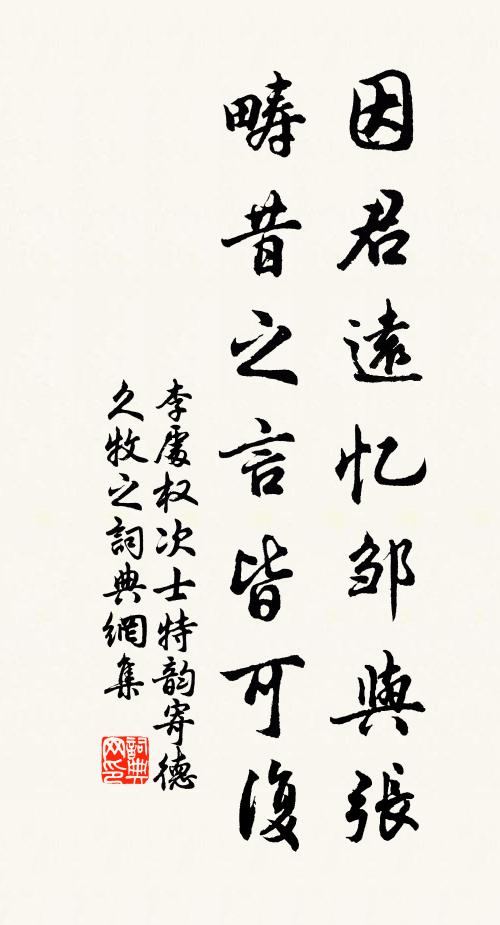 因君遠忆邹與張
疇昔之言皆可復
李處权次士特韵寄德
久牧之詞典網集
詞典网印